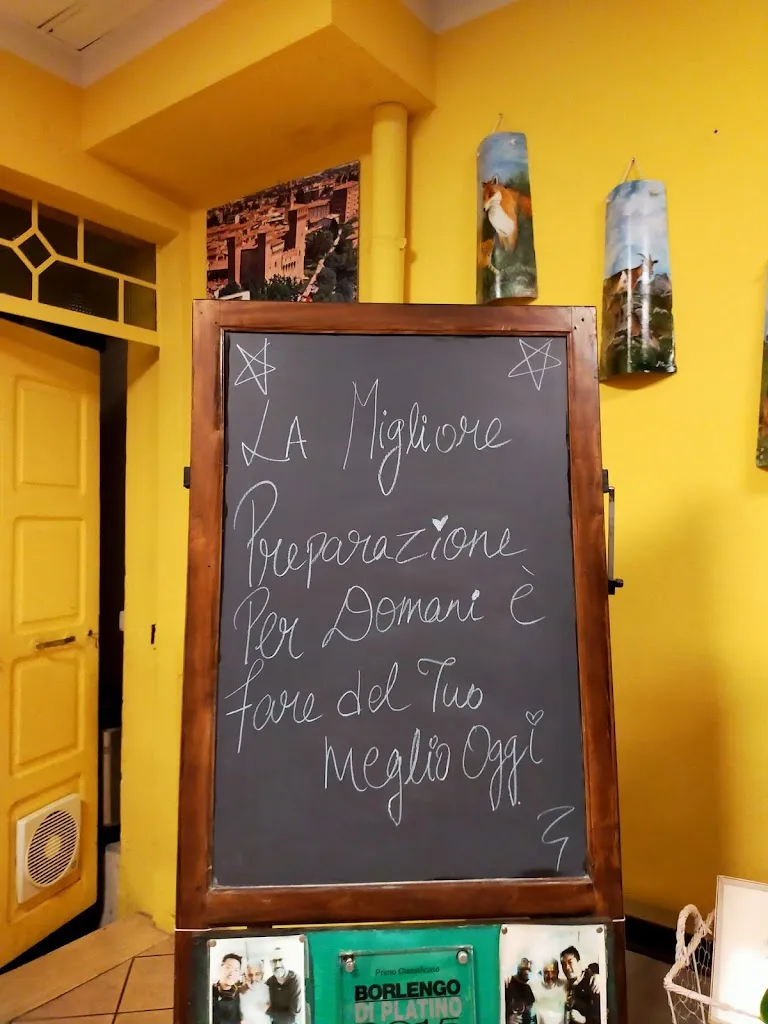 LA Migliore
Preparazione
Per Domani è
fare del Tuo
meglio Oggi
Primo Classificato
BORLENGO
DI PLATINO
2015